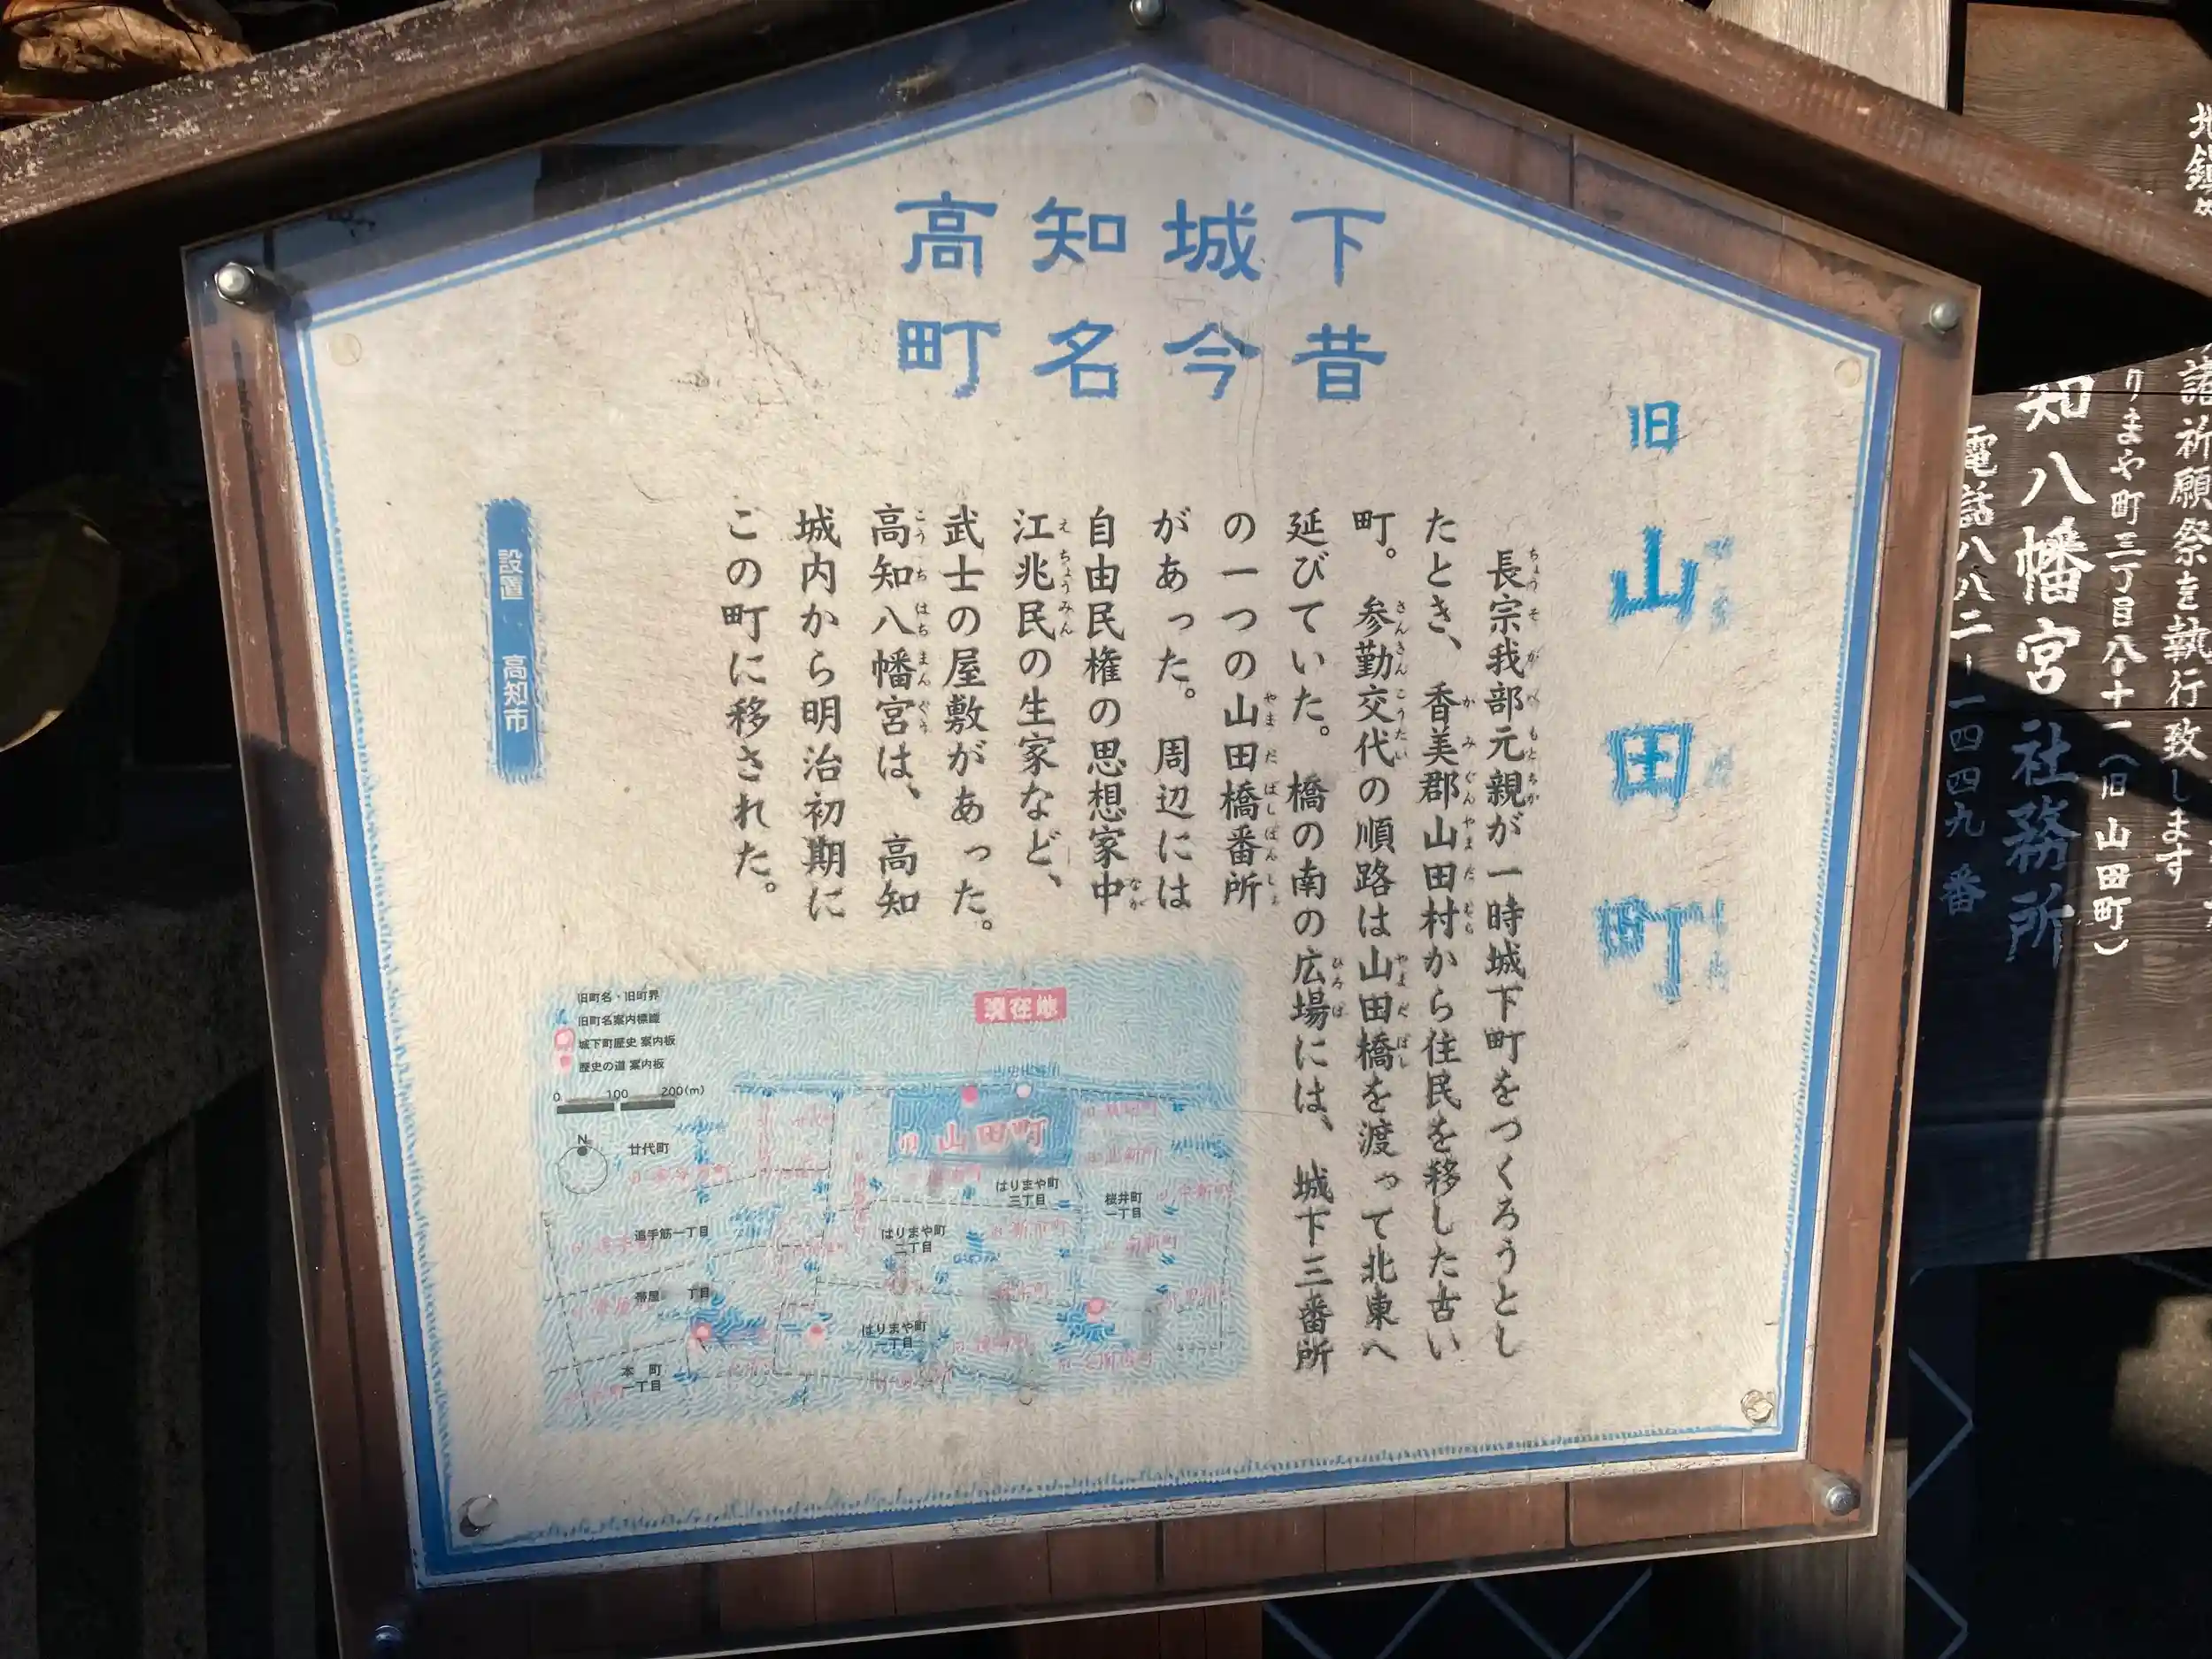 高知城下
町名今昔
旧山田町
長宗我部元親が一時城下町をつくろうとし
たとき、香美郡山田村から住民を移した古い
町。参勤交代の順路は山田橋を渡って北東へ
延びていた。橋の南の広場には、城下三番所
の一つの山田橋番所
があった。周辺には
自由民権の思想家中
江兆民の生家など、
武士の屋敷があった。
高知八幡宮は、高知
城内から明治初期に
この町に移された。
設置 高知市
現在地
旧町名・旧町界
旧町名案内標識
城下町歴史 案内板
歴史の道 案内板
0 100 200(m)
N
旧山田町
廿代町
はりまや町
三丁目
桜井町
一丁目
追手筋一丁目
はりまや町
二丁目
帯屋 丁目
はりまや町
一丁目
本町
一丁目
諸祈願祭を執行致します
りまや町三丁目八十一(旧山田町)
知八幡宮社務所
電話八八二-一四四九番